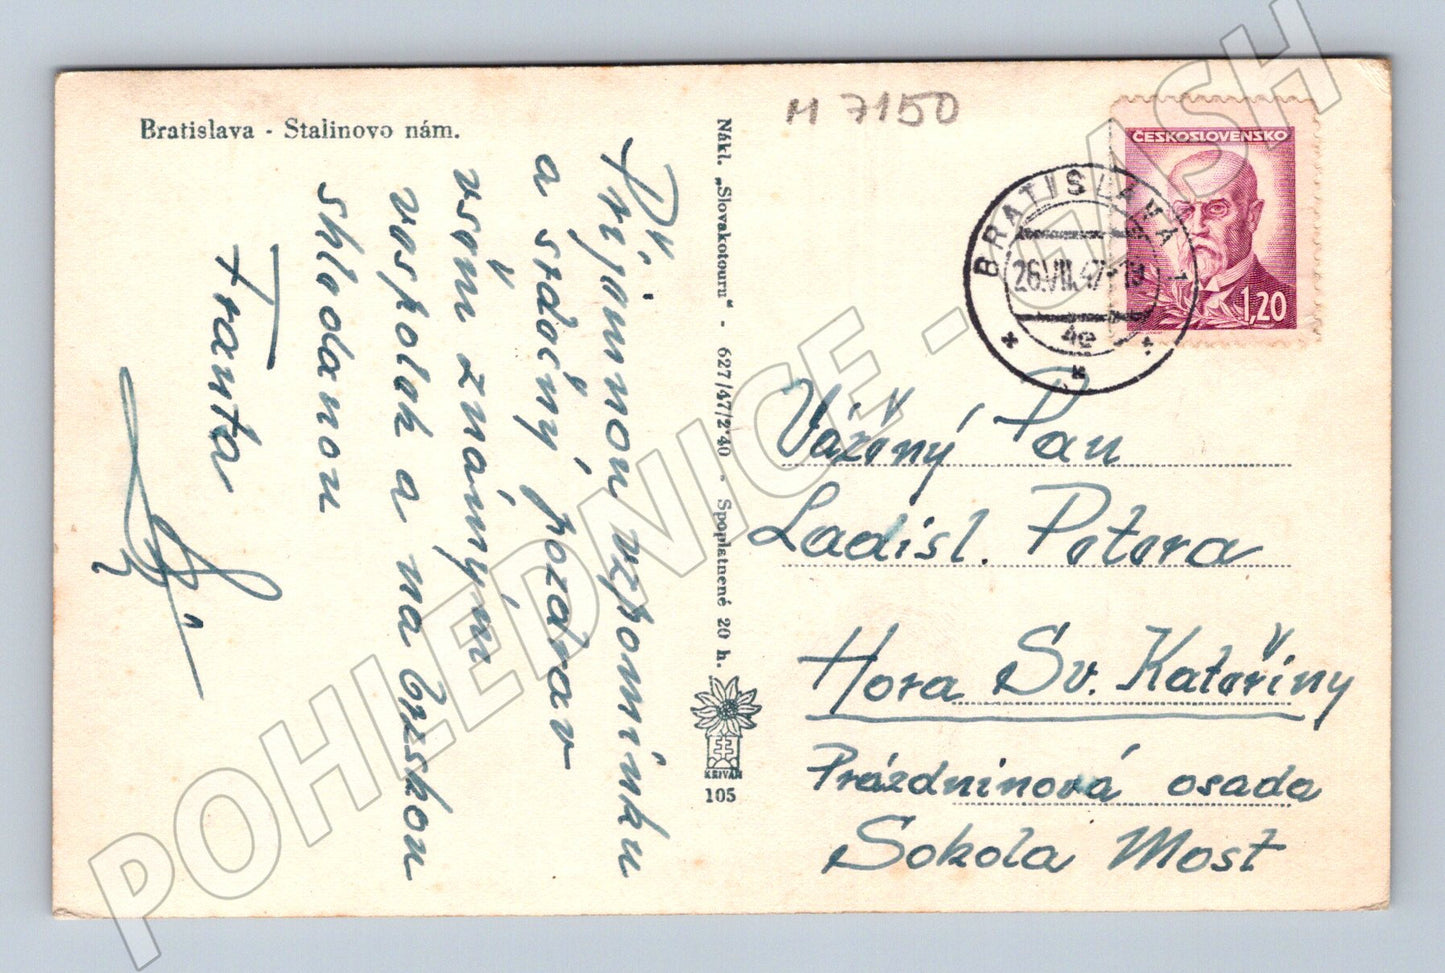 Bratislava - Stalinovo nám.
Příjemnou vzpomínku
a srdečný pozdrav
všem známým
voskolek a na brzskou
shledanou
Franta
Nákl. „Slovakotouru" - 627/47/2·40 - Spoplatnené 20 h.
KRIVÁŇ
105
M 7150
ČESKOSLOVENSKO
1,20
BRATISLAVA 1
26.VII.47-19
4e
Vážený Pan
Ladisl. Petera
Hora Sv. Kateřiny
Prázdninová osada
Sokola Most
POHLEDNICE - CASH